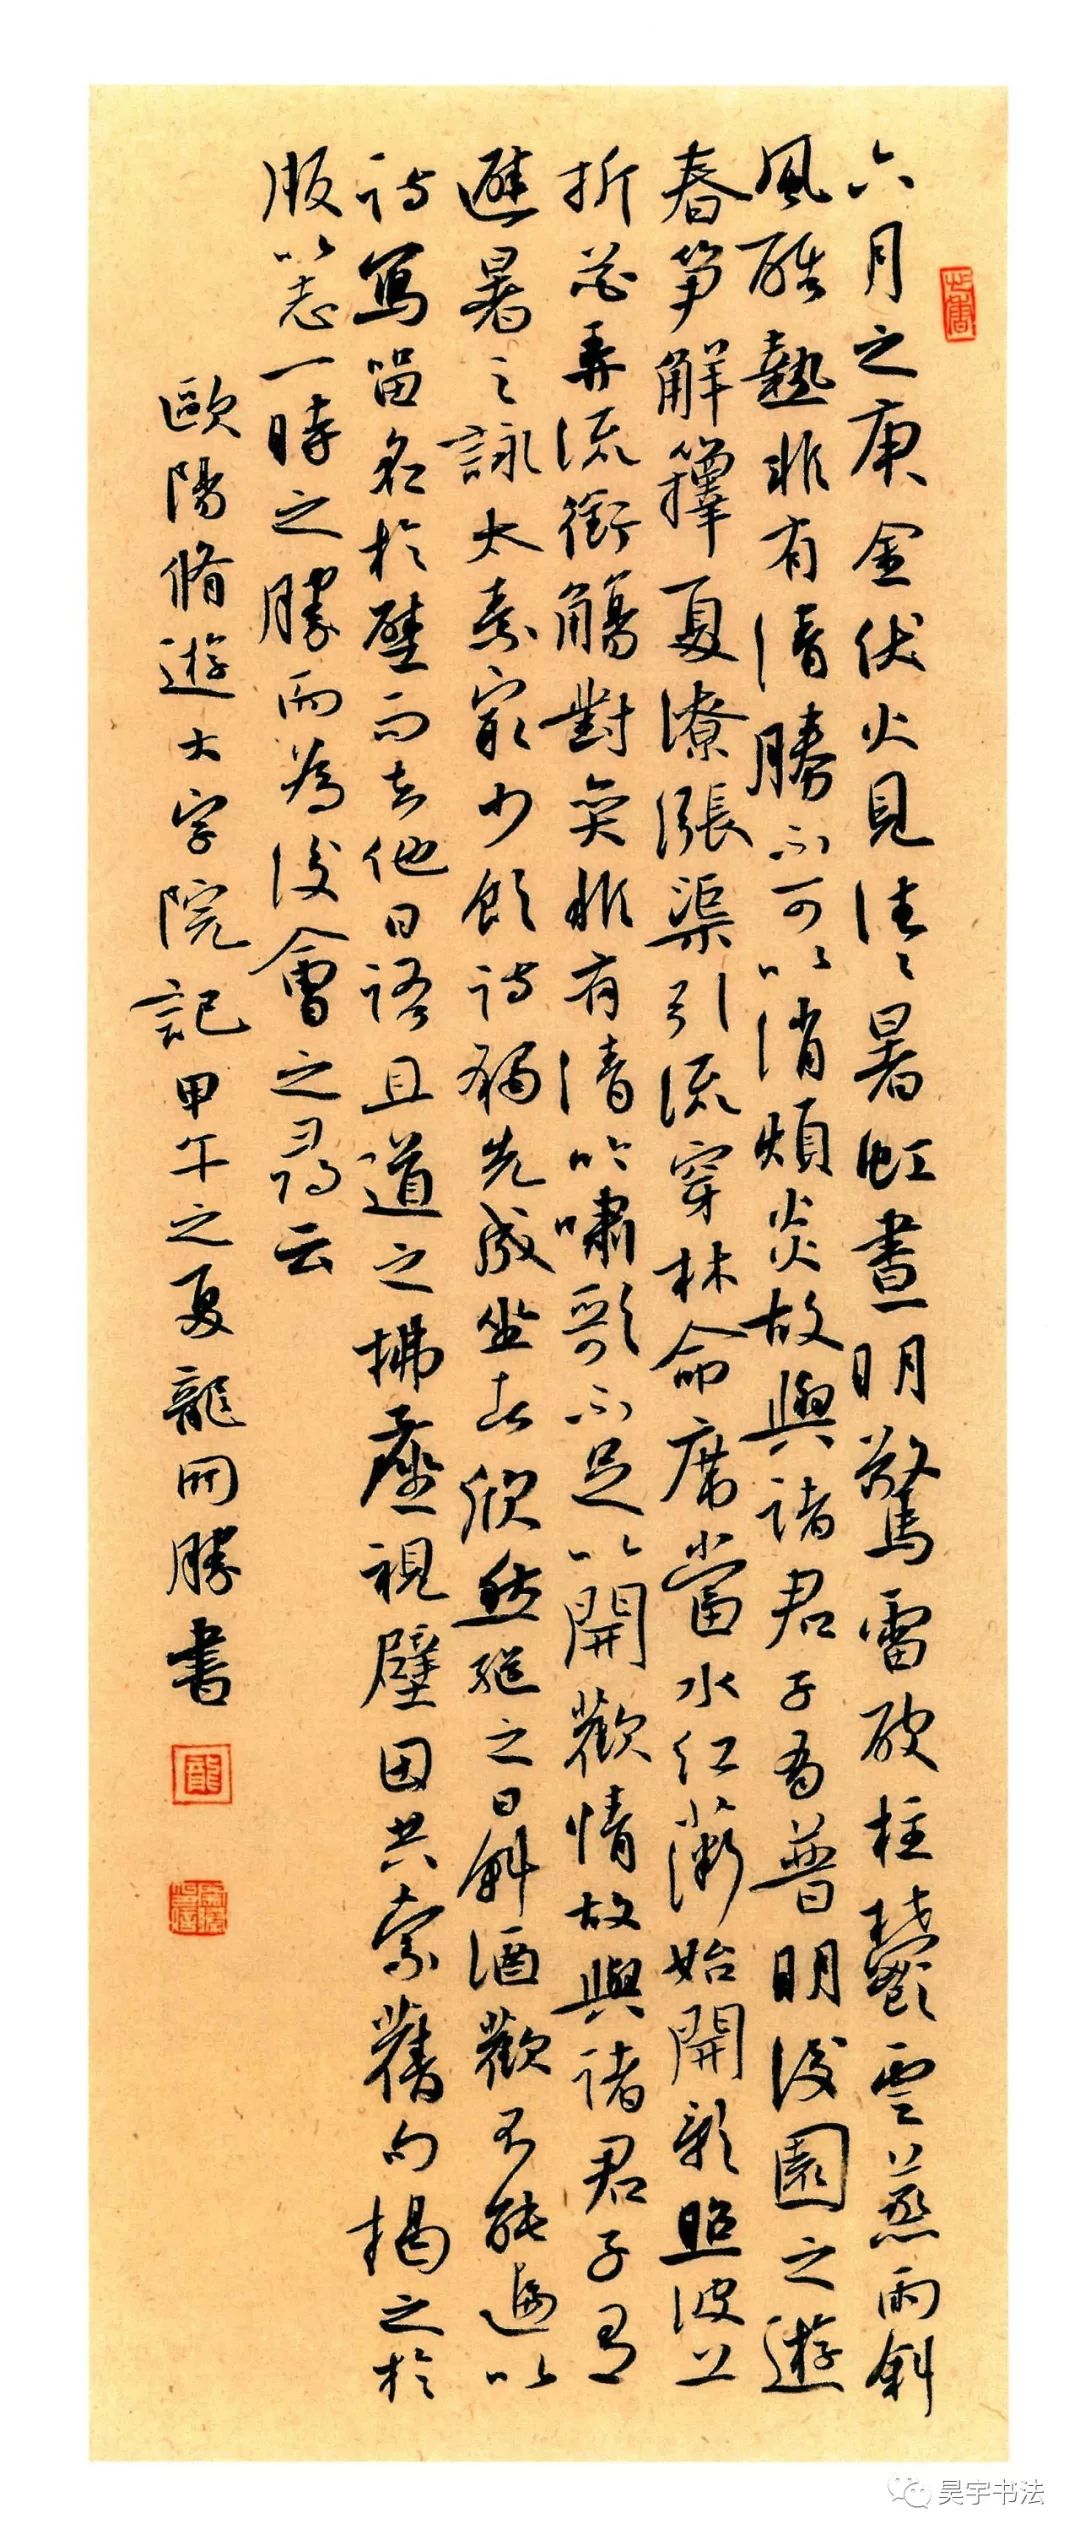 六月之庚金伏火見往々暑虹晝明驚雷破柱鬱雲蒸雨斜
風酷熱非有清勝不可以消煩炎故與諸君子有普明後園之遊
春笋解籜夏潦漲渠引流穿林命席當水紅薇始開影照波上
折花弄流銜觴對奕非有清吟嘯歌不足以開歡情故與諸君子有
避暑之詠太素最少飲詩獨先成坐者欣然繼之日斜酒歡不能遍以
詩寫留名於壁而去他日語且道之拂塵視壁因共索舊句揭之於
版以志一時之勝而為後會之尋云
歐陽脩遊大字院記甲午之夏龍開勝書
龍
昊宇书法